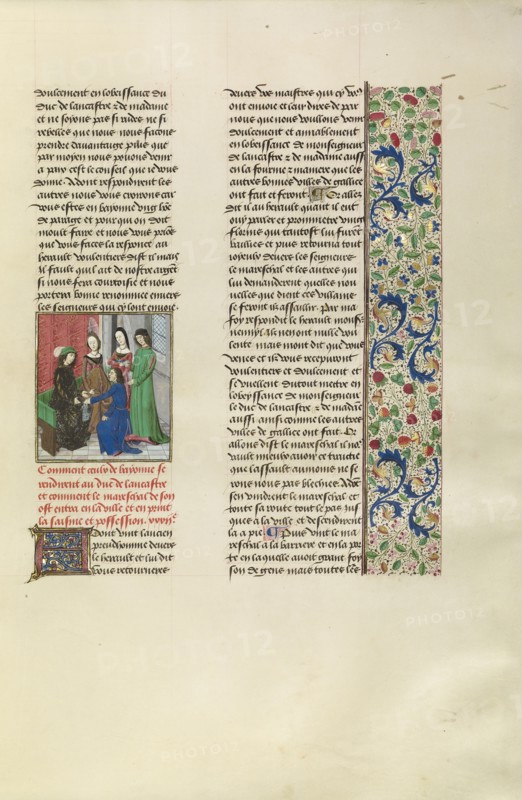 doulcement en lobeissance du
duc de lancastre & de madame
et ne soyons pas si rudes ne si
rebelles que nous nous faisons
prendre davantaige puis que
par moien nous povons venir
a paix cest le conseil que je vous
donne. Adont respondirent les
autres nous vous croirons car
vous estes en bayonne ung hõe
de paraige et pour qui on doit
moult faire et nous vous prions
que vous faces la response au
herault voulentiers dist il mais
il fault quil ait de nostre argent
si nous fera courtoisie et nous
portera bonne renommee envers
les seigneurs qui cy lont envoie.
Comment ceulx de bayonne se
rendirent au duc de lancastre
et comment le mareschal de son
ost entra en la ville et en print
la saisine et possession.
Adont vint lancien
preudhomme devers
le herault et lui dist
vous retournerez
devers voz maistres qui cy vous
ont envoie et leur direz de par
nous que nous voullons venir
doulcement et amiablement
en lobeissance de monseigneur
de lancastre & de madame aussi
en la fourme & maniere que les
autres bonnes villes de gallice
ont fait et feront. Or allez
dit il au herault
ouy parler et promettre vingt
florins qui tantost lui furent
bailliez et puis retourna tout
joyeux devers les seigneurs
le mareschal et les autres qui
lui demanderent quelles nou
velles que dient ces villains
se feront ilz assaillir. Par ma
foy respondi le herault monsr
nennyl. Ilz nen ont nulle vou
lente mais mont dit que vous
venez et ilz vous recepvront
voulentiers et doulcement et
se veullent du tout mettre en
lobeyssance de monseigneur
le duc de lancastre & de madame
aussi ainsi comme les autres
villes de gallice ont fait. Or
allons dist le mareschal il no9
vault mieulx avoir et traictie
que lassault aumoins ne se
rons nous pas bleschez. Adont
sen vindrent le mareschal et
toute sa route tout le pas jus
ques a la ville et descendirent
la a pie. Puis vint le ma
reschal a la barriere et en la por
te en laquelle avoit grant foy
son de gens mais toutes les
PHOTO12
PHOTO12
PHOTO12